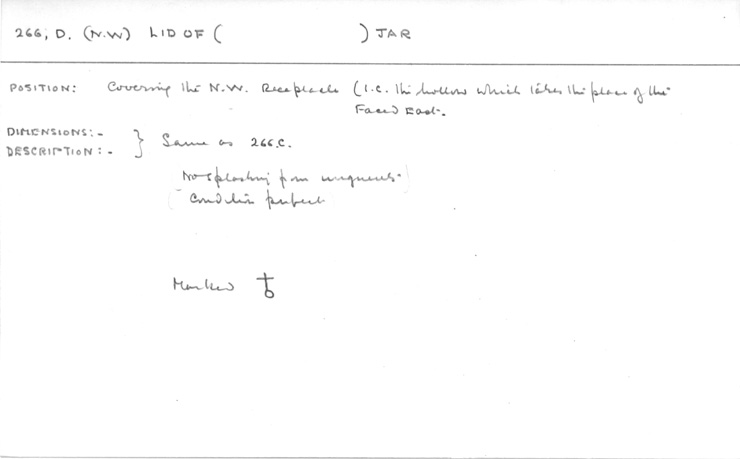 266, D. (N.W) LID OF ( ) JAR
POSITION: Covering the N.W. Receptacle (I.e. the hollow which takes the place of the
Faced East.
DIMENSIONS:- } Same as 266.C.
DESCRIPTION:-
No splashing from unguents
Condition perfect
Marked